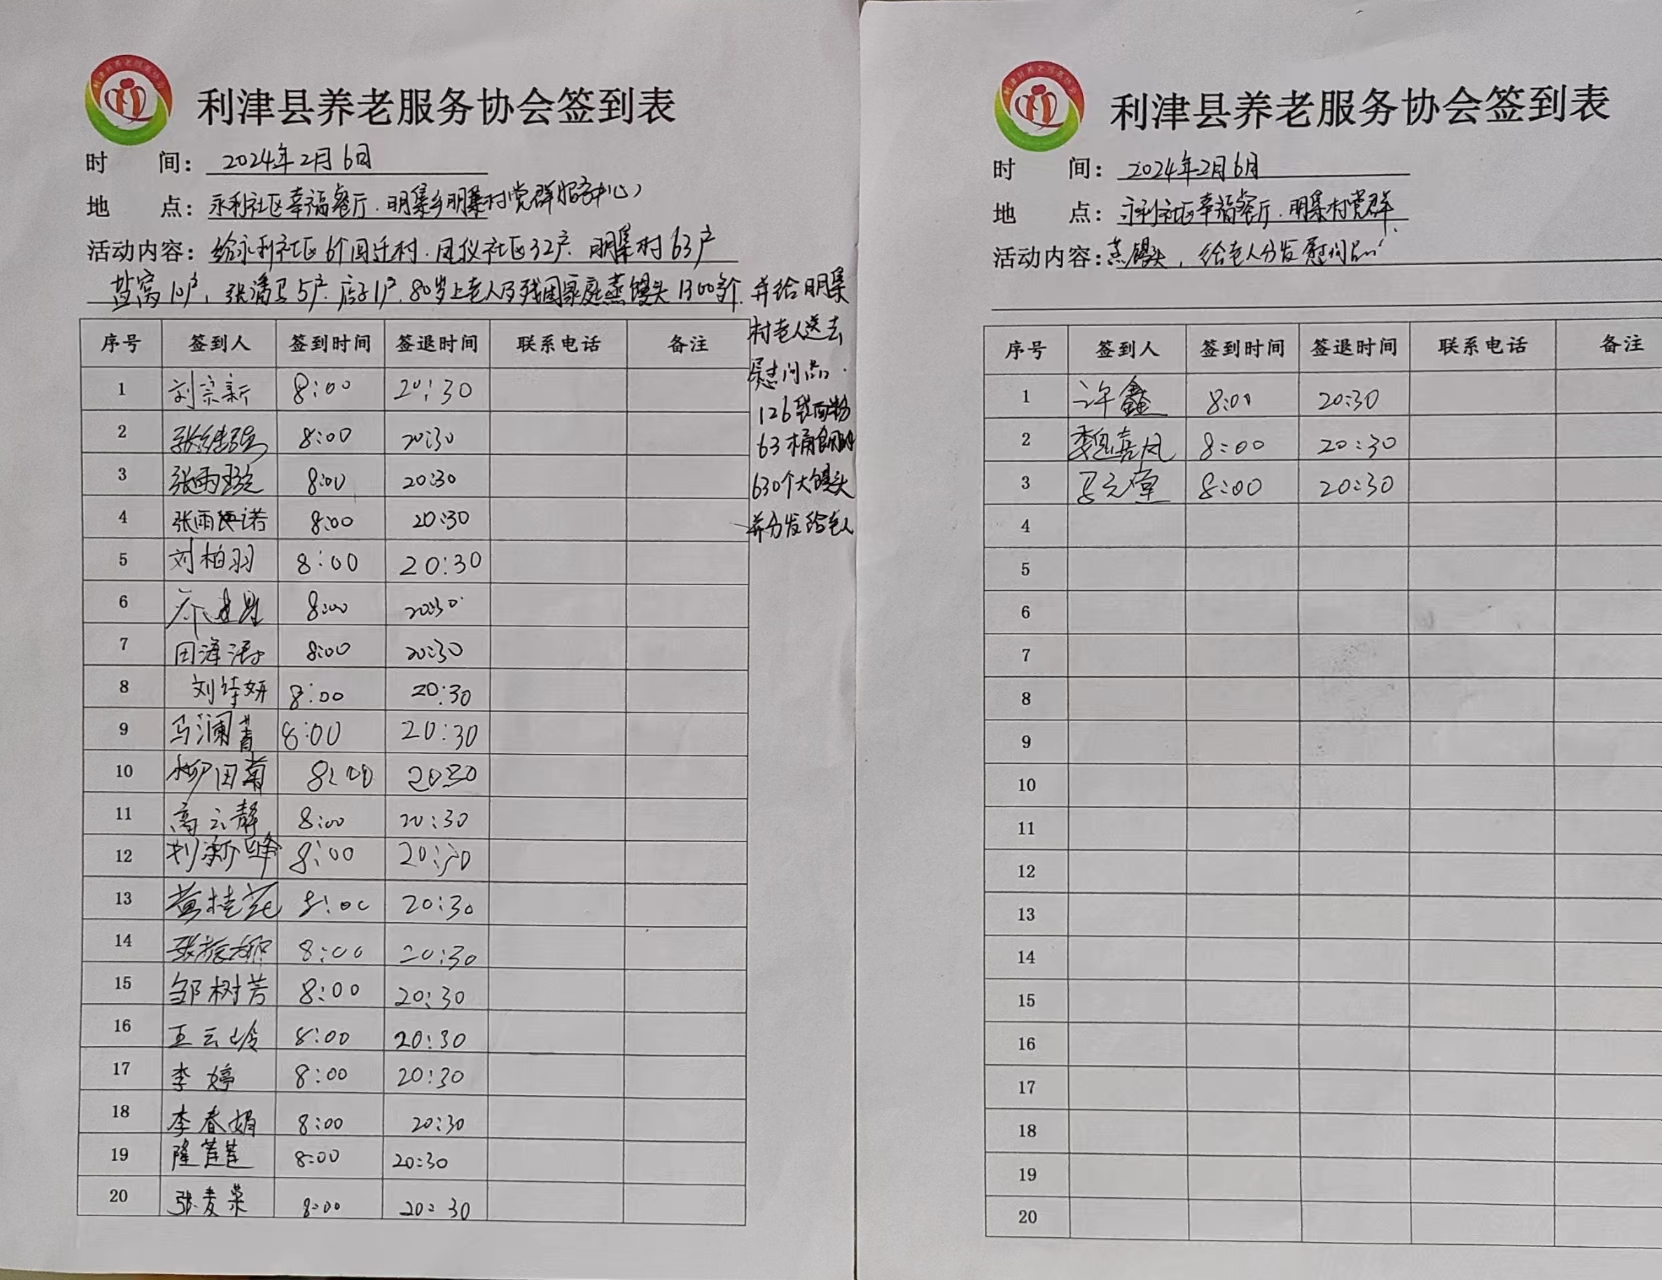 利津县养老服务协会签到表
时 间: 2024年2月6日
地 点: 永利社区幸福餐厅.明集乡明集村党群服务中心)
活动内容: 给永利社区6个回迁村.凤仪社区32户.明集村63户
盐窝10户,张潘马5户.店子1户.80岁上老人及残困家庭蒸馒头1300多个.并给明集
村老人送去
慰问品.
126袋面粉
63桶食用油
630个大馒头
并分发给老人
序号 签到人 签到时间 签退时间 联系电话 备注
1 刘宗新 8:00 20:30
2 8:00 20:30
3 8:00 20:30
4 8:00 20:30
5 刘柏羽 8:00 20:30
6 8:00 20:30
7 8:00 20:30
8 8:00 20:30
9 马澜菁 8:00 20:30
10 柳田菊 8:00 20:30
11 高云静 8:00 20:30
12 刘新峰 8:00 20:30
13 黄桂花 8:00 20:30
14 8:00 20:30
15 邹树芳 8:00 20:30
16 王云岭 8:00 20:30
17 李婷 8:00 20:30
18 李春娟 8:00 20:30
19 隆莲莲 8:00 20:30
20 张麦荣 8:00 20:30
利津县养老服务协会签到表
时 间: 2024年2月6日
地 点: 永利社区幸福餐厅.明集村党群
活动内容: 蒸馒头,给老人分发慰问品
序号 签到人 签到时间 签退时间 联系电话 备注
1 许鑫 8:00 20:30
2 魏嘉凤 8:00 20:30
3 8:00 20:30
4
5
6
7
8
9
10
11
12
13
14
15
16
17
18
19
20